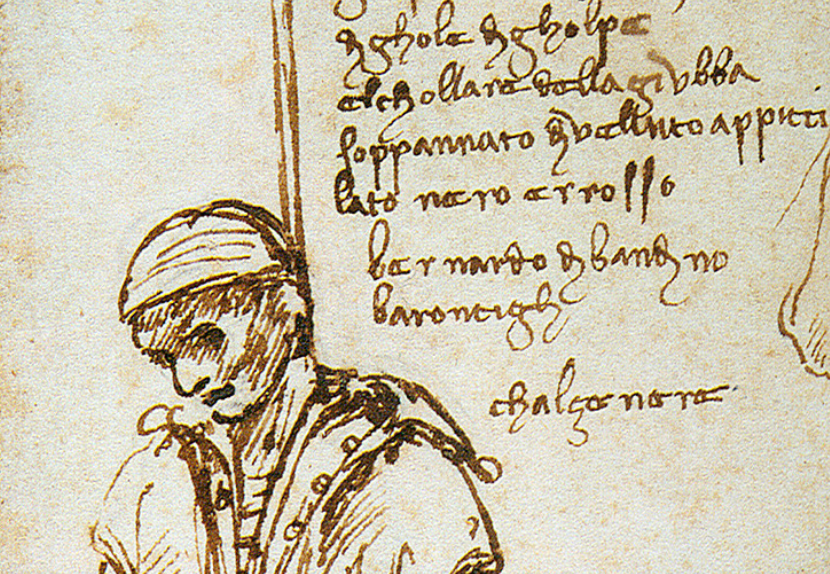 dj ghole dj gholpe
elchollare della giubba
soppannato dj velluto appicci
lato nero errosso
bernardo dj bandjno
baroncigli
chalze nere